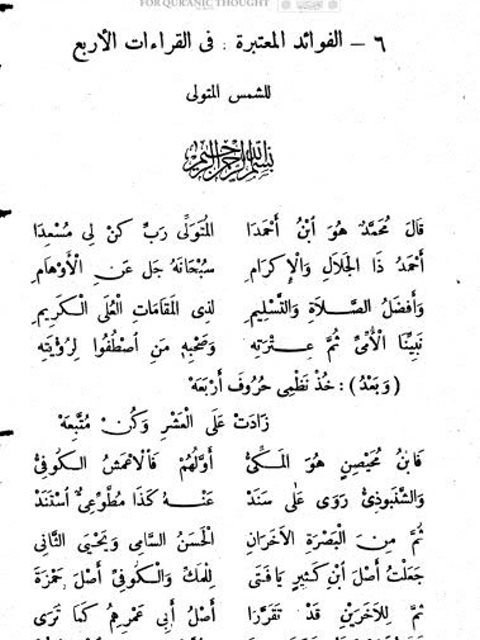 FOR QURANIC THOUGHT
٦ – الفوائد المعتبرة : فى القراءات الأربع
للشمس المتولى
بسم الله الرحمن الرحيم
قَالَ مُحَمَّدٌ هُوَ ابْنُ أَحْمَدَا الْمُتَوَلِّى رَبِّ كُنْ لِى مُسْعِدَا
أَحْمَدُ ذَا الْجَلَالِ وَالْإِكْرَامِ سُبْحَانَهُ جَلَّ عَنِ الْأَوْهَامِ
وَأَفْضَلُ الصَّلَاةِ وَالتَّسْلِيمِ لِذِى الْمَقَامَاتِ الْعُلَى الْكَرِيمِ
نَبِيِّنَا الْأُمِّىِّ ثُمَّ عِتْرَتِهِ وَصَحْبِهِ مَنِ اصْطُفُوا لِرُؤْيَتِهِ
(وَبَعْدُ) : خُذْ نَظْمِى حُرُوفَ أَرْبَعَهْ
زَادَتْ عَلَى الْعَشْرِ وَكُنْ مُتَّبِعَهْ
فَابْنُ مُحَيْصِنٍ هُوَ الْمَكِّىُّ أَوَّلُهُمْ فَالْأَعْمَشُ الْكُوفِىُّ
وَالشَّنَبُوذِىُّ رَوَى عَلَى سَنَدْ عَنْهُ كَذَا مُطَّوِّعِىٌّ اسْتَنَدْ
ثُمَّ مِنَ الْبَصْرَةِ الْآخَرَانِ الْحَسَنُ السَّامِى وَيَحْيَى الثَّانِى
جَعَلْتُ أَصْلَ ابْنِ كَثِيرٍ يَا فَتَى لِلْمَكِّ وَالْكُوفِىِّ أَصْلَ حَمْزَةَ
ثُمَّ لِلْآخَرَيْنِ قَدْ تَقَرَّرَا أَصْلُ أَبِى عَمْرِهِمُ كَمَا تَرَى